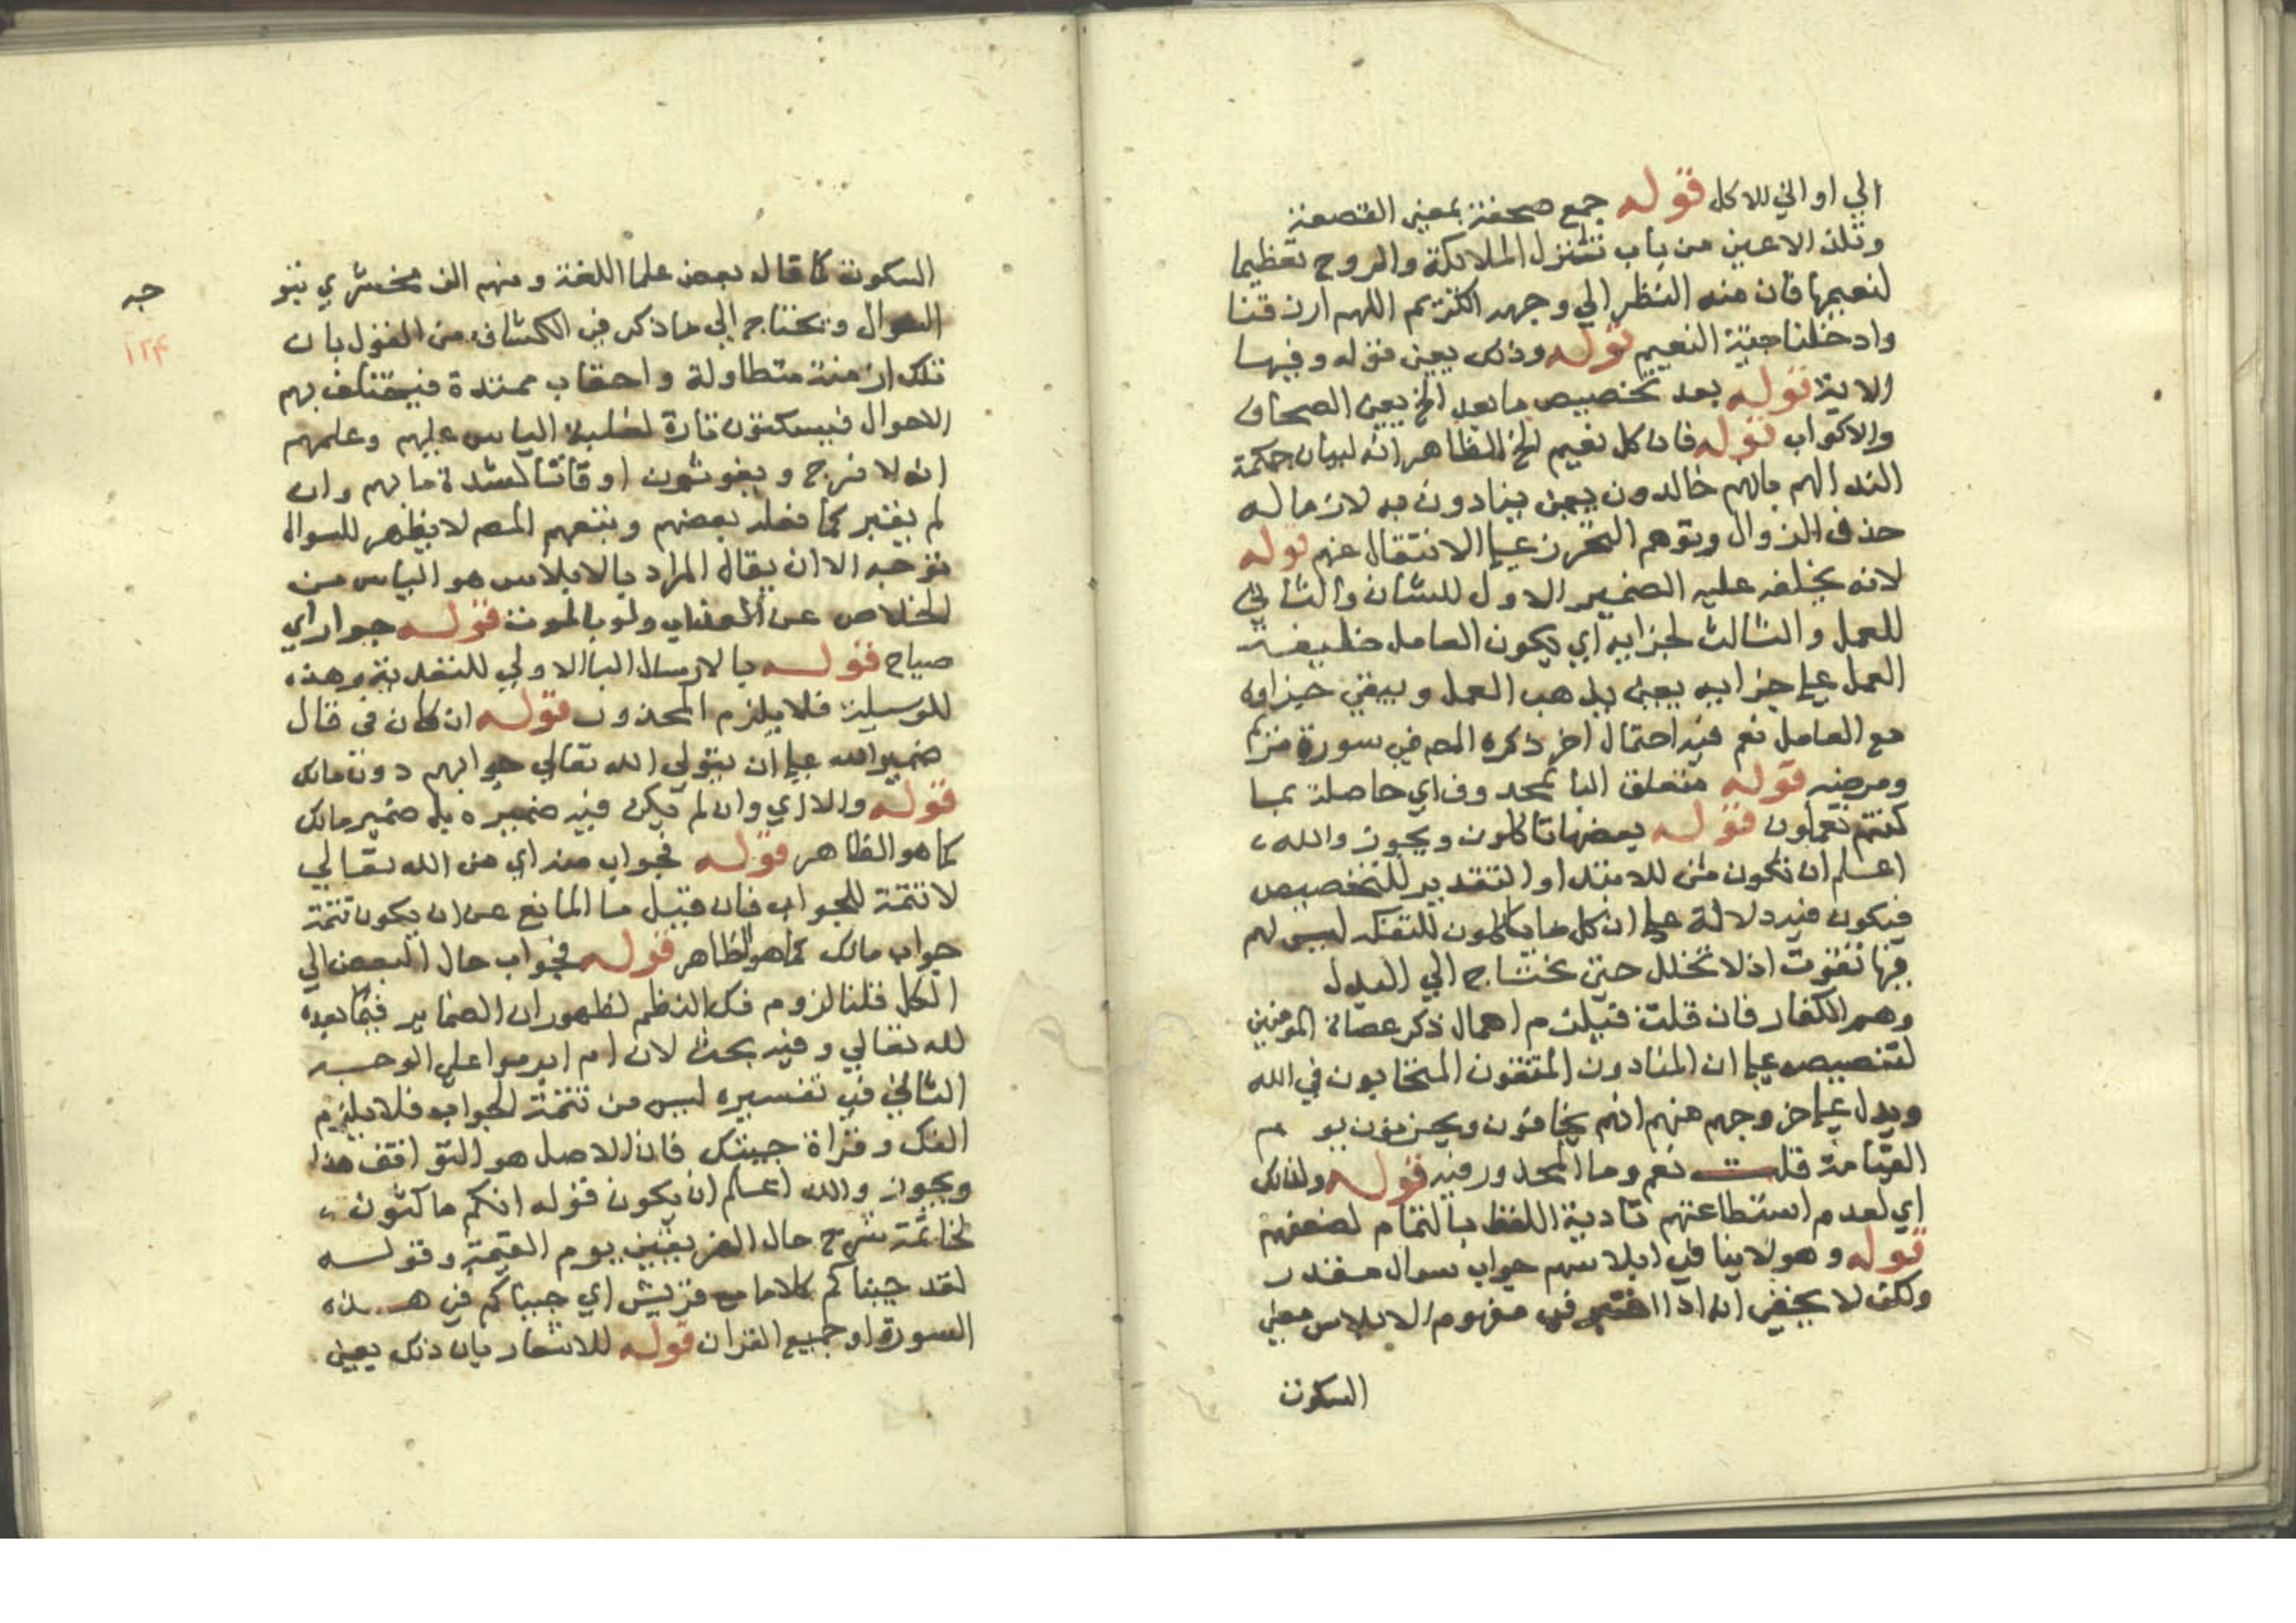 الي اواني للاكل قوله جمع صحفة بمعني القصعة
وتلذ الاعين من باب تنزل الملائكة والروح تعظيما
لنعيمها فان منه النظر الي وجهه الكريم اللهم ارزقنا
وادخلنا جنة النعيم قوله وذلك يعني قوله وفيها
الاية قوله بعد تخصيص ما يعد الخ يعني الصحاف
والاكواب قوله فان كل نعيم الخ الظاهر انه لبيان حكمة
الندا لهم بانهم خالدون يعني ينادون به لازماله
حذف الزوال وتوهم التحرز علي الانتقال عنهم قوله
لانه يخلفه عليه الضمير الاول للشان والثاني
للعمل والثالث لجزايه اي يكون العامل خليفة
العمل علي جزايه يعني يذهب العمل ويبقي جزاوه
مع العامل نعم فيه احتمال اخر ذكره المص في سورة مريم
ومرضه قوله متعلق البا بمحذوف اي حاصلة بما
كنتم تعملون قوله بعضها تاكلون ويجوز والله
اعلم ان تكون من للابتدا والتقدير للتخصيص
فيكون فيه دلالة علي ان كل ما ياكلون للتفكه ليس لهم
فيها تقوت اذ لا تحلل حتي تحتاج الي البدل
وهم الكفار فان قلت فيلزم اهمال ذكر عصاة المومنين
لتنصيص علي ان المنادون المتقون المتحابون في الله
ويدل علي خروجهم منهم انهم يخافون ويحزنون يوم
القيامة قلت نعم وما المحذور فيه قوله ولذلك
اي لعدم استطاعتهم تادية اللفظ بالتمام لضعفهم
قوله وهو لا ينافي ابلاسهم جواب سوال مقدر
ولكن لا يخفي انه اذا اعتبر في مفهوم الابلاس معني
السكوت
السكوت كما قال بعض علما اللغة ومنهم الزمخشري يتو
جه
السوال ويحتاج الي ما ذكر في الكشاف من القول بان
١٢٤
تلك ازمنة متطاولة واحقاب ممتدة فيختلف بهم
الاحوال فيسكتون تارة لغلبة الياس عليهم وعلمهم
انه لا فرج ويغوثون اوقاتا لشدة ما بهم وان
لم يعتبر كما فعله بعضهم وتبعهم المص لا يظهر للسوال
توجه الا ان يقال المراد بالابلاس هو الياس من
الخلاص عن العذاب ولو بالموت قوله جوار اي
صياح قوله بالارسال البا الاولي للتعدية وهذه
للوسيلة فلا يلزم المحذور قوله ان كان في قال
ضمير الله علي ان يتولي الله تعالي جوابهم دون مالك
قوله والا اي وان لم يكن فيه ضميره بل ضمير مالك
كما هو الظاهر قوله فجواب منه اي من الله تعالي
لا تتمة للجواب فان قيل ما المانع عن ان يكون تتمة
جواب مالك كما هو الظاهر قوله فجواب حال البعض الي
الكل قلنا لزوم فك النظم لظهور ان الضماير فيما بعده
لله تعالي وفيه بحث لان ام ابرموا علي الوجه
الثاني في تفسيره ليس من تتمة الجواب فلا يلزم
الفك وقراة جيتك فان الاصل هو التوافق هذا
ويجوز والله اعلم ان يكون قوله انكم ماكثون
لخاتمة شرح حال الفريقين يوم القيمة وقوله
لقد جيناكم كلاما مع قريش اي جيناكم في هذه
السورة او جميع القران قوله للاشعار بان ذلك يعني